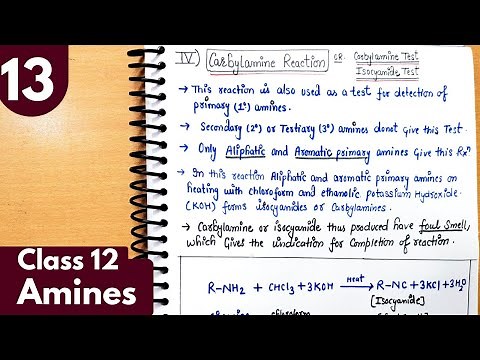 13
Class 12
Amines
IV) Carbylamine Reaction OR Carbylamine Test
Isocyanide Test
→ This reaction is also used as a test for detection of
primary (1°) amines.
→ Secondary (2°) or Tertiary (3°) amines donot Give this Test.
→ Only Aliphatic and Aromatic primary amines Give this Rxⁿ
→ In this reaction Aliphatic and aromatic primary amines on
heating with chloroform and ethanolic potassium Hydroxide
(KOH) forms isocyanides or Carbylamines.
→ Carbylamine or isocyanide thus produced have foul Smell,
which Gives the indication for Completion of reaction.
R-NH₂ + CHCl₃ + 3KOH Heat → R-NC + 3KCl + 3H₂O
[Isocyanide]
chloroform